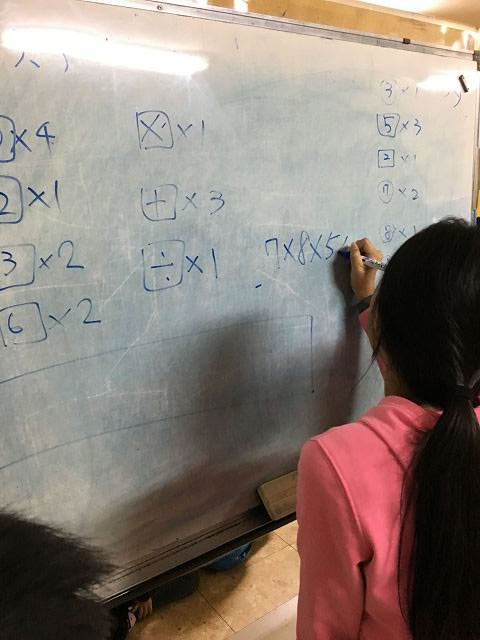 ×4
2 ×1
3 ×2
6 ×2
× ×1
+ ×3
÷ ×1
7×8×5
3 × 1
5 ×3
2 ×1
7 ×2
8 ×1